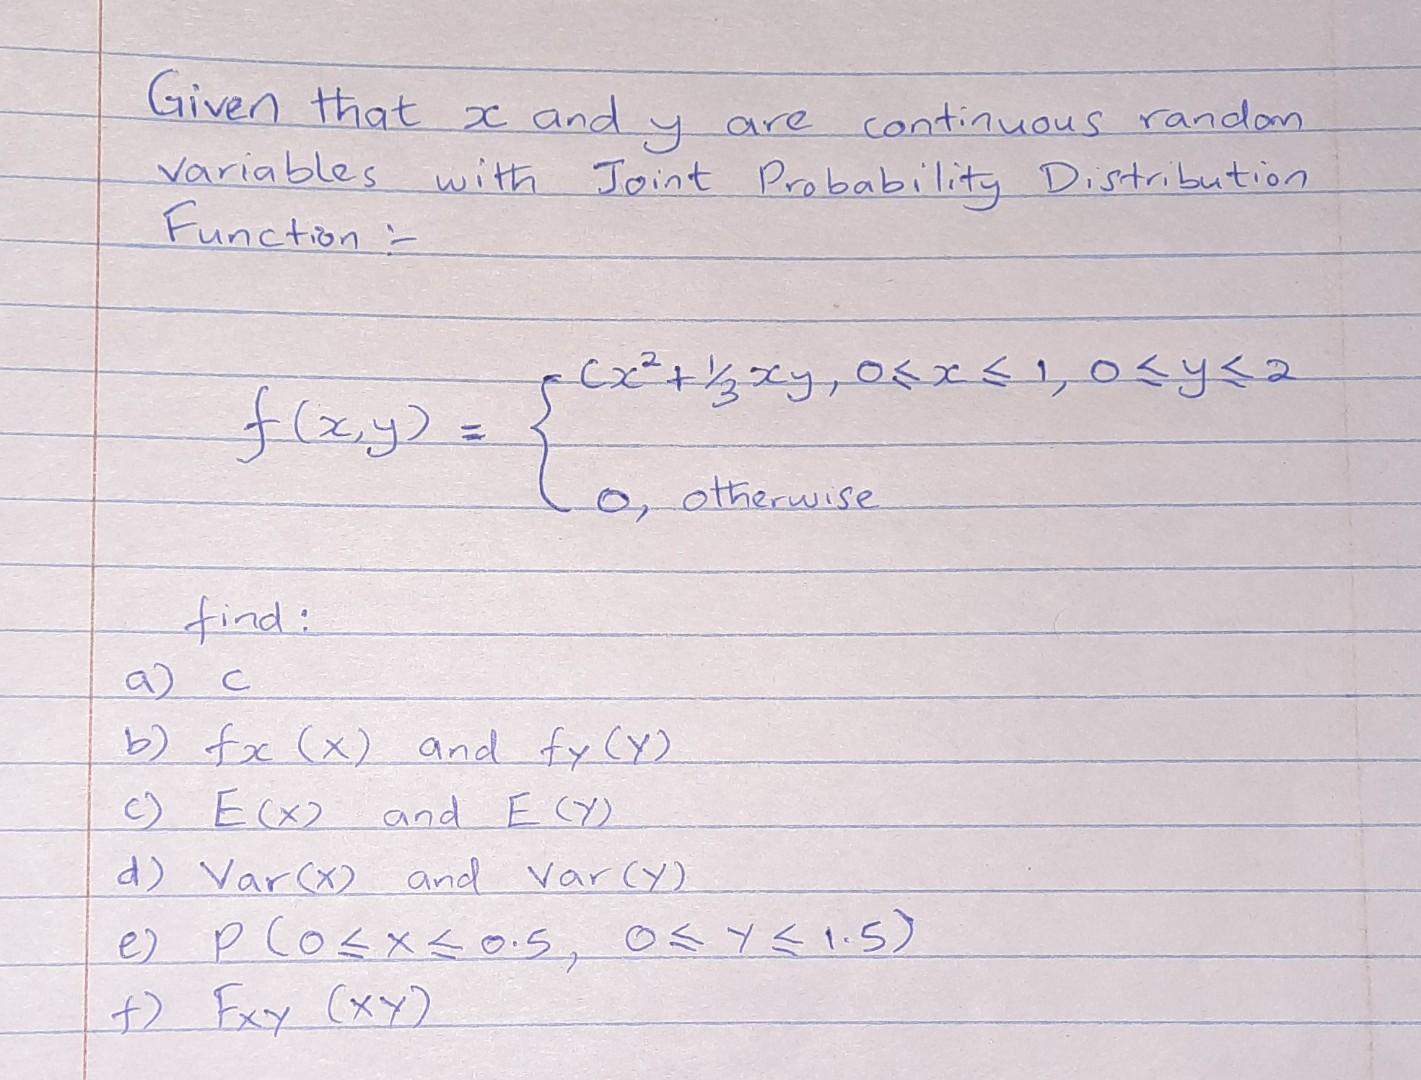 Given that x and y are continuous random
variables with Joint Probability Distribution
Function :-
f(x,y) = { Cx² + 1/3 xy, 0 ≤ x ≤ 1, 0 ≤ y ≤ 2
0, otherwise
find:
a) c
b) fx (X) and fy (Y)
c) E(X) and E(Y)
d) Var(X) and Var(Y)
e) P(0 ≤ X ≤ 0.5, 0 ≤ Y ≤ 1.5)
f) Fxy (XY)